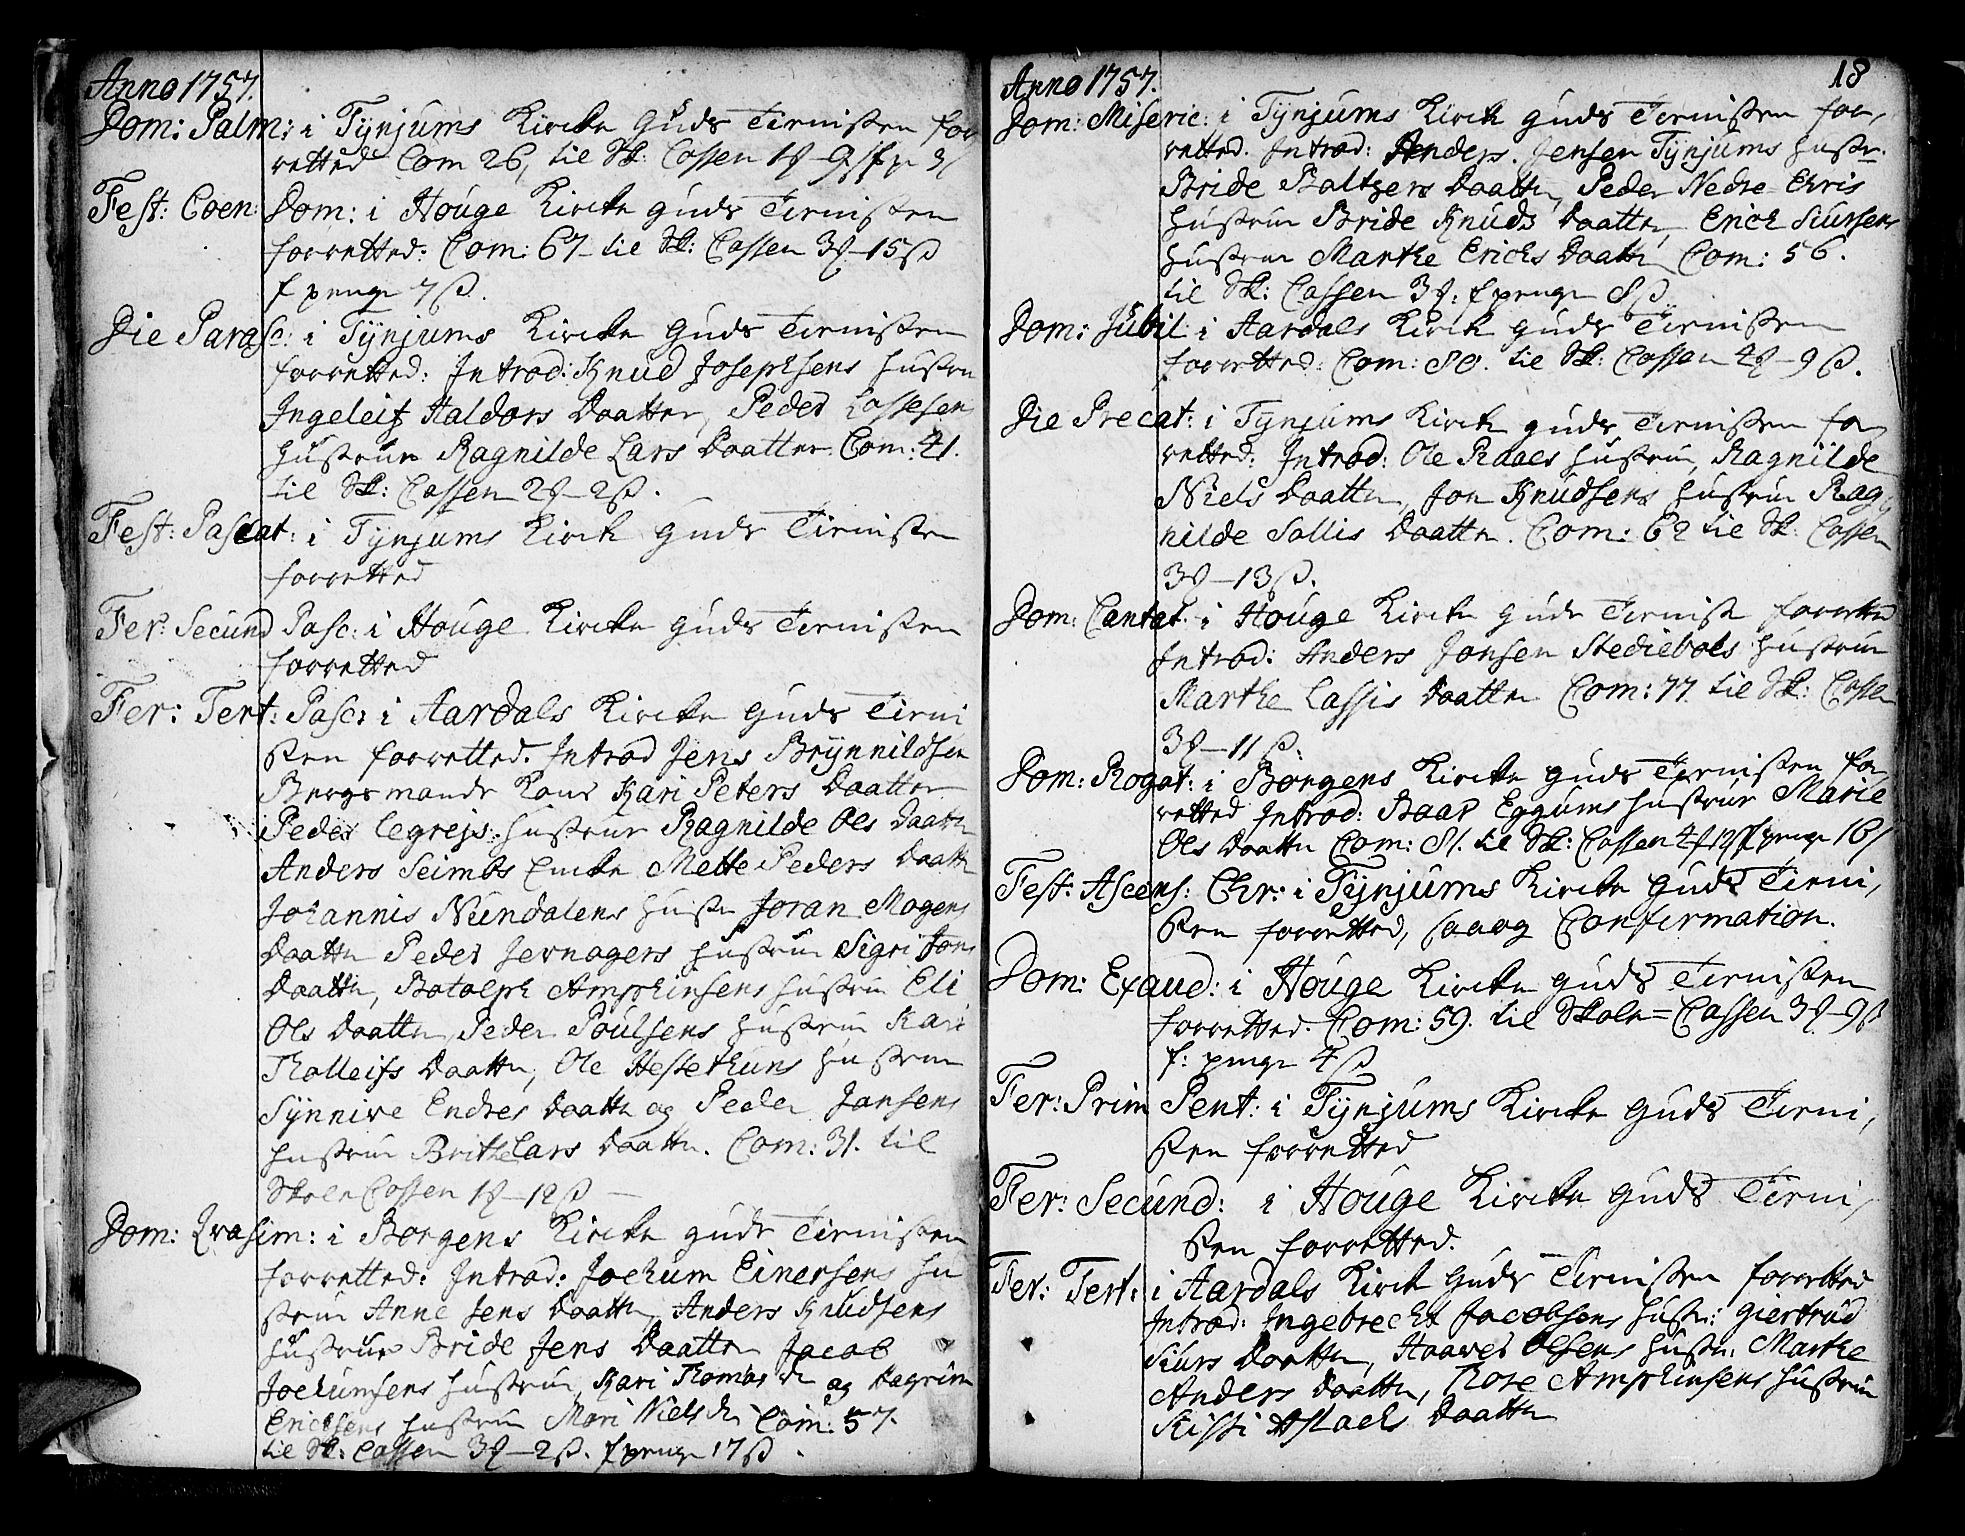 Anno 1757.
Dom: Palm: i Tÿnjums Kircke Guds Tienisten for
retted Com 26, til Sk: Cassen
Fest: Coen: Dom: i Houge Kircke Guds Tienisten
forretted: Com: 67 til Sk: Cassen 3 – 15 ß
f penge 7 ß.
Die Parasc: i Tÿnjums Kircke Guds Tienisten
forretted: Introd: Knud Josephsens Hustru
Ingeleif Haldors Daatter, Peder Lassesens
Hustrue Ragnilde Lars Daatter Com: 41.
til Sk: Cassen 2 – 2 ß.
Fest: Pascat: i Tÿnjums Kirck Guds Tienisten
forretted
Fer: Secund Pasc: i Houge Kircke Guds Tienisten
forretted
Fer: Tert: Pasc: i Aardals Kircke Guds Tieni
sten forretted. Introd Jens Brÿnnildsen
Bergsmands Kone Kari Peters Daatter
Peder Hustrue Ragnilde Ols Daatter
Anders Seimbs Encke Mette Peders Daatt
Johannis Nundalens Hustr Joran Mogens
Daatter Peder Jernagers Hustrue Sigri Jons
Daatter, Botolph Amphinsens Hustru Eli
Ols Daatter, Peder Poulsens Hustrue Kari
Tholleifs Daatter, Ole Hessethuns Hustrue
Sÿnnive Endres Daatter og Peder Jansens
Hustrue Brithe Lars Daatter. Com: 31. til
Skole Cassen 1 – 12 ß
Dom: Qvasim: i Borgens Kircke Guds Tienisten
forretted: Introd: Jochum Einersens Hu
strue Anne Jens Daatter, Anders Knudsens
Hustrue Bride Jens Daatter Jacob
Jochumsens Hustrue, Kari Thomas D og Hagrim
Ericksens Hustrue Mari Niels D: Com: 57.
til Sk: Cassen 3 – 2 ß. f penge 17 ß.
18
Anno 1757.
Dom: Miseric: i Tÿnjums Kirck Guds Tienisten for,
retted. Introd: Anders Jensen Tÿnjums Hustr.
Bride Baltzers Daatter, Peder Nedre Chris
Hustrue Bride Knuds Daatter, Erich Siursens
Hustrue Marthe Erichs Daatter Com: 56.
til Sk: Cassen 3: f penge 8 ß
Dom: Jubil: i Aardals Kirck Guds Tienisten
forretted: Com: 80. til Sk: Cassen 4 – 9 ß.
Die Precat: i Tÿnjums Kirck Guds Tienisten for
retted: Introd: Ole Raaes Hustrue, Ragnilde
Niels Daatter, Jon Knudsens Hustrue Rag,
nilde Sallis Daatter. Com: 62 til Sk: Cassen
3 – 13 ß.
Dom: Cantat: i Houge Kircke Guds Tienist forretted
Introd: Anders Jonsen Stediebols Hustrue
Marthe Lassis Daatter Com: 77. til Sk: Cassen
3 – 11 ß.
Dom: Rogat: i Borgens Kircke Guds Tienisten for,
retted Introd: Baar Eggums Hustrue Marie
Ols Daatter Com: 81. til Sk: Cassen 4 f penge 16
Fest: Ascens: Chr: i Tÿnjums Kircke Guds Tieni,
sten forretted, saa og Confirmation.
Dom: Exaud: i Houge Kircke Guds Tienisten
forretted. Com: 59. til Skole=Cassen 3 – 9 ß
f: penge 4 ß
Fer: Prim Pent: i Tÿnjums Kircke Guds Tieni,
sten forretted
Fer: Secund: i Houge Kircke Guds Tieni,
sten forretted.
Fer: Tert: i Aardals Kirck Guds Tienisten forretted
Introd: Ingebrecht Jacobsens Hustr: Giertrud
Siurs Daatter, Haaver Olsens Hustr: Marthe
Anders Daatter, Thore Amphinsens Hustrue
Kisti Aslachs Daatter